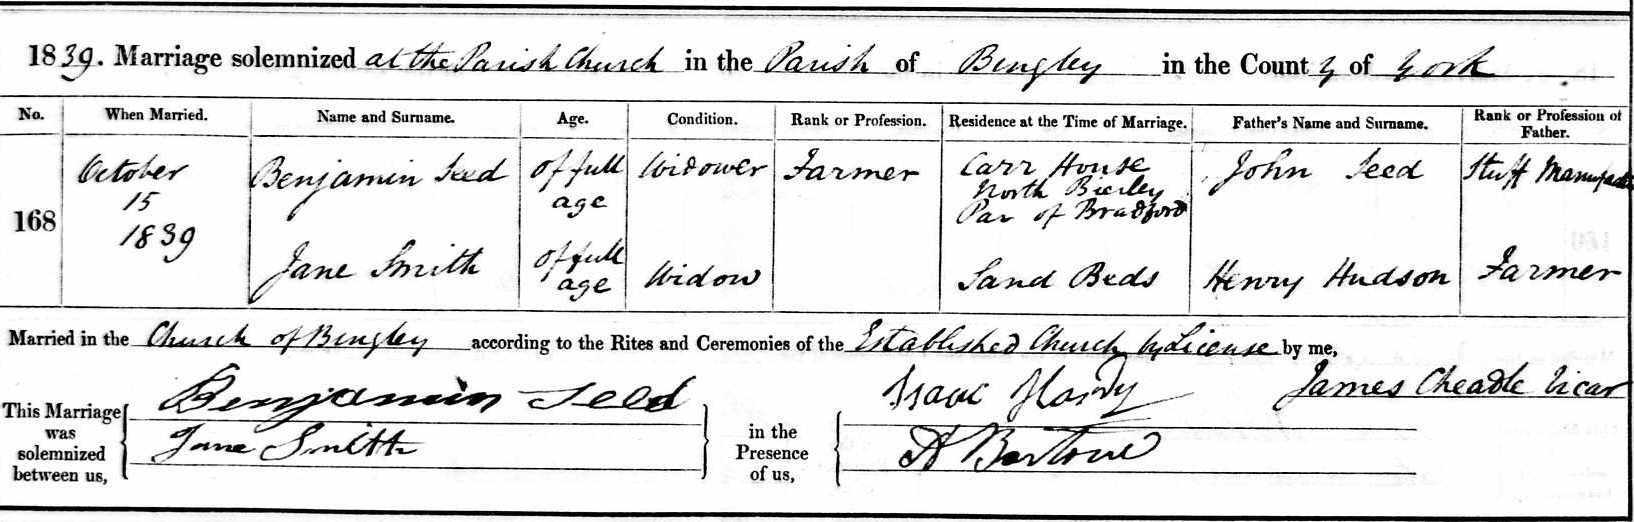 1839. Marriage solemnized at the Parish Church in the Parish of Bingley in the County of York
No. When Married. Name and Surname. Age. Condition. Rank or Profession. Residence at the Time of Marriage. Father's Name and Surname. Rank or Profession of Father.
168 October 15 1839 Benjamin Seed of full age Widower Farmer Carr House North Bierley Par of Bradford John Seed Stuff Manufactu
Jane Smith of full age Widow Sand Beds Henry Hudson Farmer
Married in the Church of Bingley according to the Rites and Ceremonies of the Established Church by License by me,
James Cheadle Vicar
This Marriage was solemnized between us, Benjamin Seed Jane Smith in the Presence of us, Isaac Hardy A